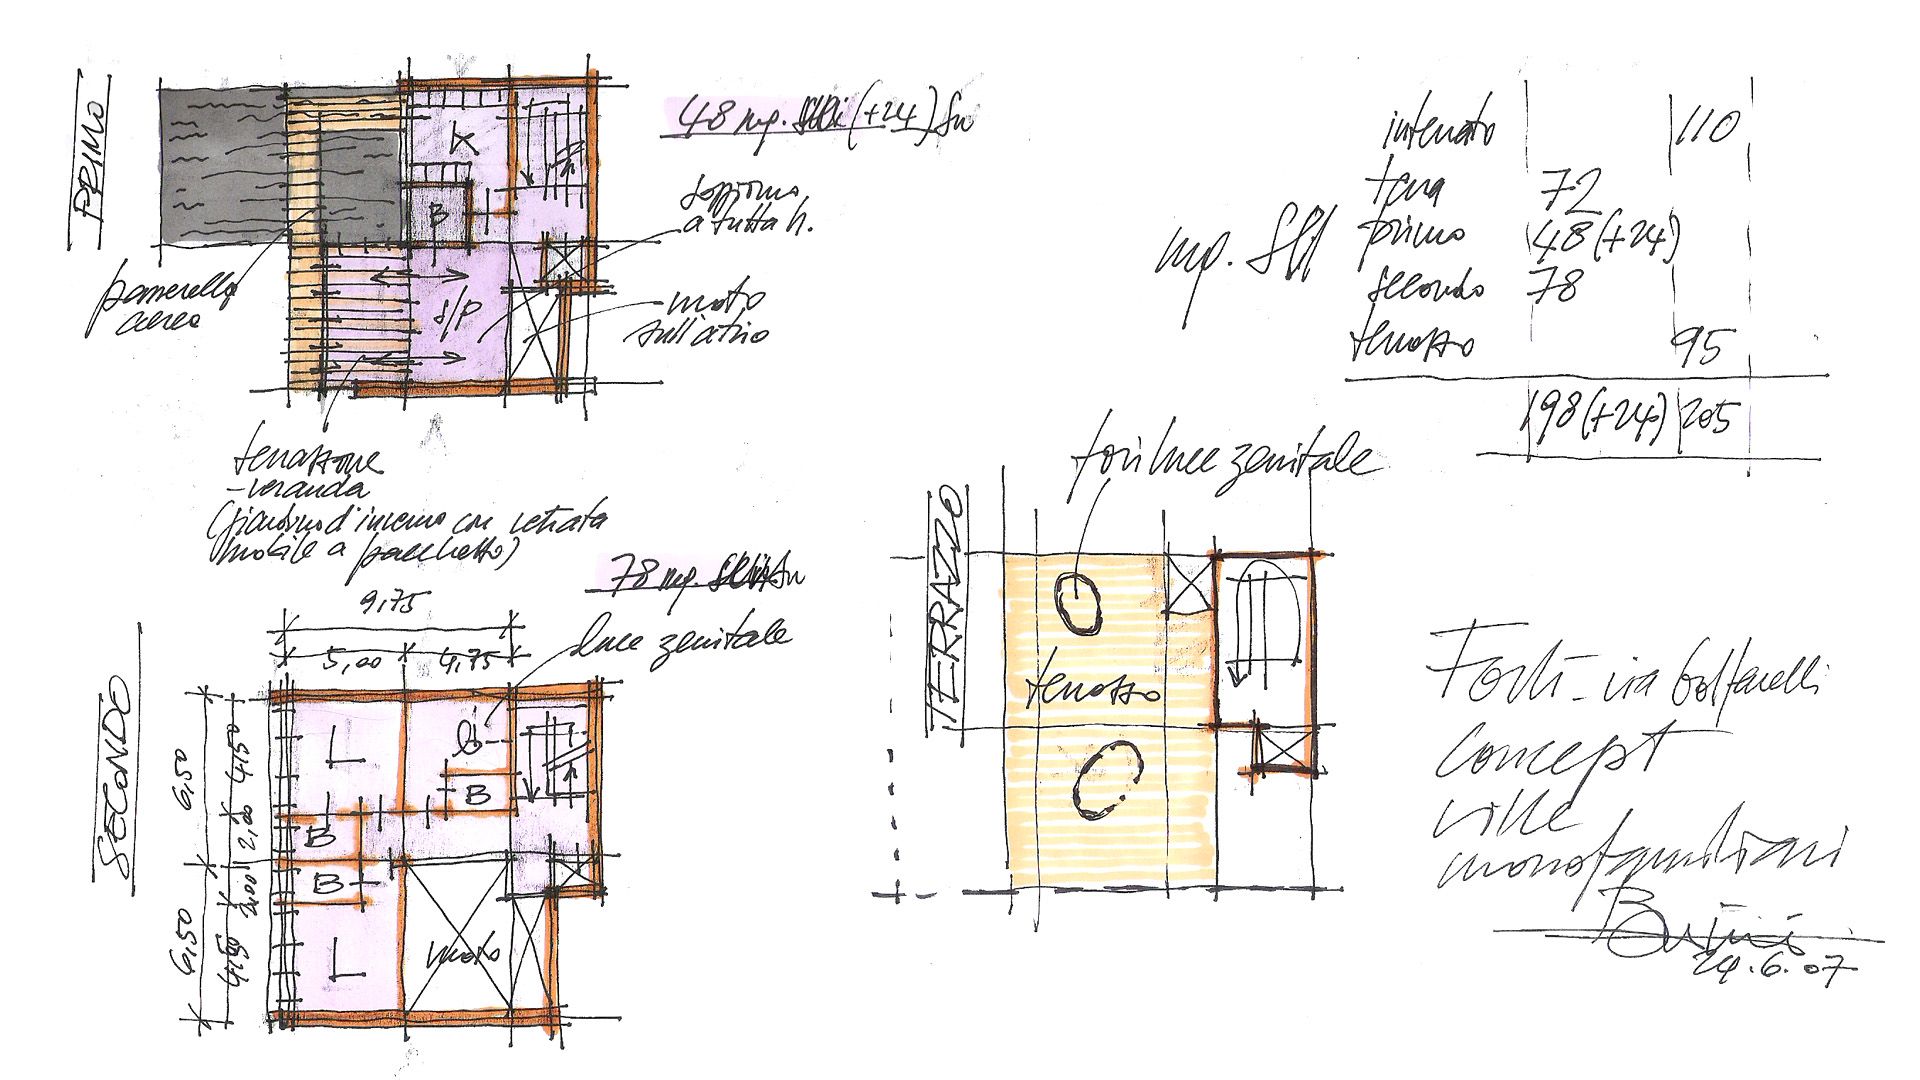 PRIMO
48 mq. (+24) Su
K
B
S/P
soggiorno
a tutta h.
vuoto
sull'atrio
passerella
aerea
terrazzone
-veranda
(giardino d'inverno con vetrata
mobile a pacchetto)
mq. Sul
interrato 110
terra 72
primo 48(+24)
secondo 78
terrazzo 95
198(+24) 205
SECONDO
78 mq. Su
luce zenitale
9,75
5,00 4,75
6,50 6,50
4,50 2,00 2,00 4,50
L
B
B
B
L
vuoto
TERRAZZO
fori luce zenitale
terrazzo
Forlì - via
concept
ville
monofamiliari
24.6.07